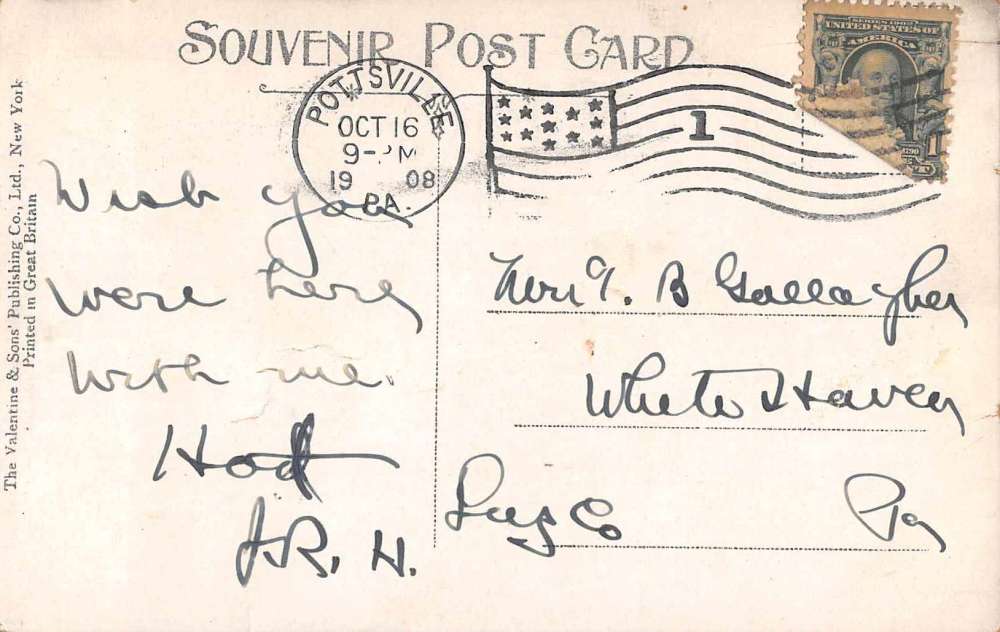 SOUVENIR POST CARD
POTTSVILLE
OCT 16
9-PM
19 08
PA.
1
SERIES 1902
UNITED STATES OF
AMERICA
1790
The Valentine & Sons' Publishing Co., Ltd., New York
Printed in Great Britain
Wish you
were here
with me.
J.R. H.
B Gallagher
White Haven
Luz Co Pa